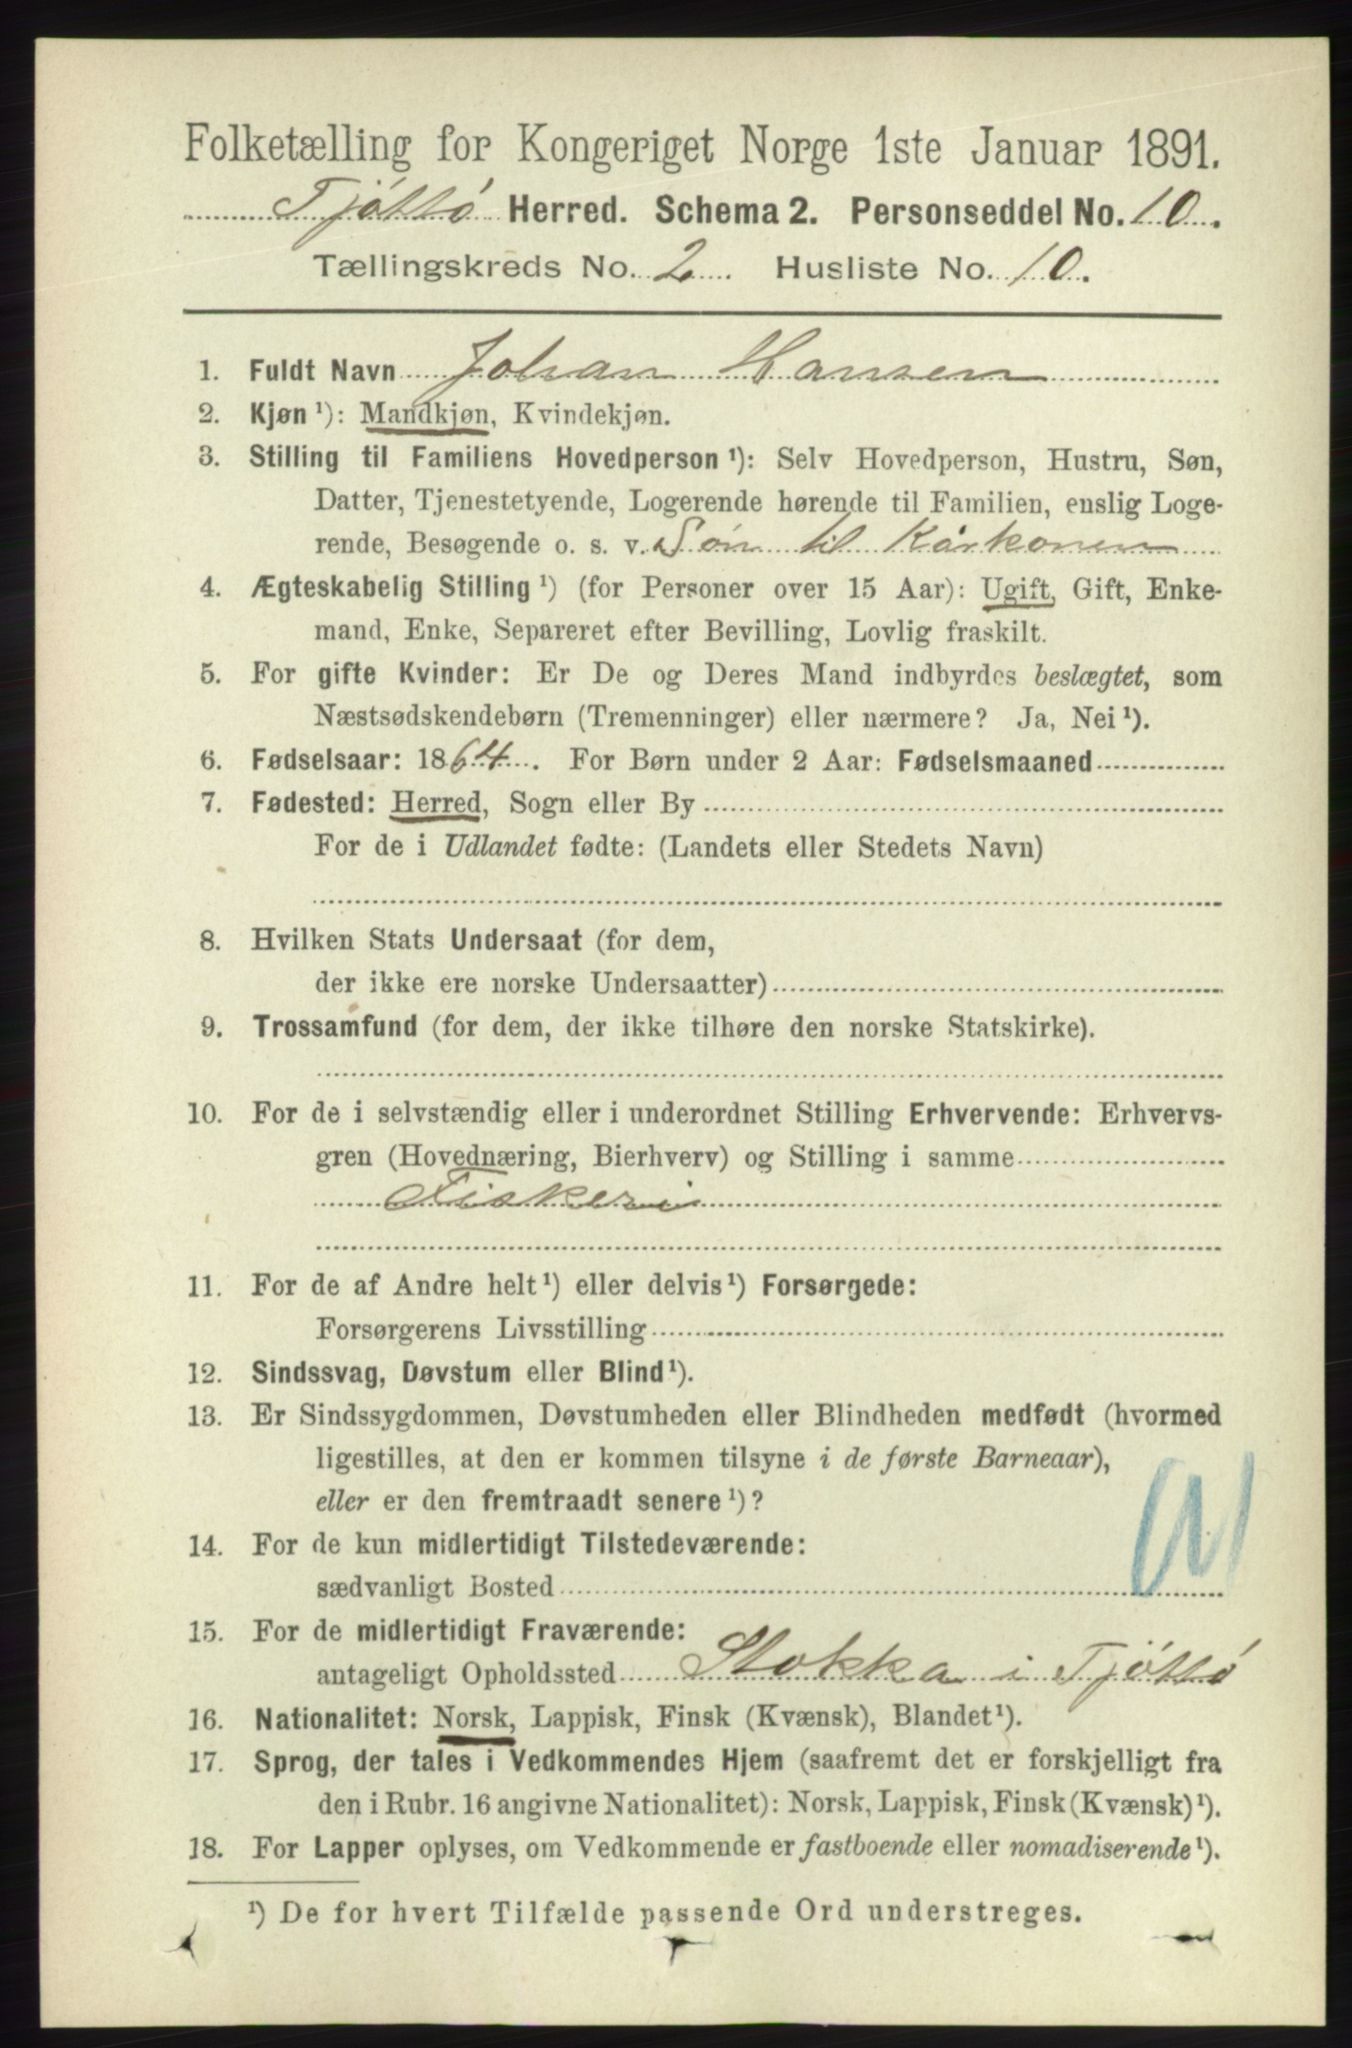 Folketælling for Kongeriget Norge 1ste Januar 1891.
Tjöttö Herred. Schema 2. Personseddel No. 10.
Tællingskreds No. 2. Husliste No. 10.
1. Fuldt Navn Johan Hansen
2. Kjøn ¹): Mandkjøn, Kvindekjøn.
3. Stilling til Familiens Hovedperson ¹): Selv Hovedperson, Hustru, Søn,
Datter, Tjenestetyende, Logerende hørende til Familien, enslig Loge-
rende, Besøgende o. s. v. Sön til Kårkonen
4. Ægteskabelig Stilling ¹) (for Personer over 15 Aar): Ugift, Gift, Enke-
mand, Enke, Separeret efter Bevilling, Lovlig fraskilt.
5. For gifte Kvinder: Er De og Deres Mand indbyrdes beslægtet, som
Næstsødskendebørn (Tremenninger) eller nærmere? Ja, Nei ¹).
6. Fødselsaar: 1864. For Børn under 2 Aar: Fødselsmaaned
7. Fødested: Herred, Sogn eller By
For de i Udlandet fødte: (Landets eller Stedets Navn)
8. Hvilken Stats Undersaat (for dem,
der ikke ere norske Undersaatter)
9. Trossamfund (for dem, der ikke tilhøre den norske Statskirke).
10. For de i selvstændig eller i underordnet Stilling Erhvervende: Erhvervs-
gren (Hovednæring, Bierhverv) og Stilling i samme
Fiskeri
11. For de af Andre helt ¹) eller delvis ¹) Forsørgede:
Forsørgerens Livsstilling
12. Sindssvag, Døvstum eller Blind ¹).
13. Er Sindssygdommen, Døvstumheden eller Blindheden medfødt (hvormed
ligestilles, at den er kommen tilsyne i de første Barneaar),
eller er den fremtraadt senere ¹)?
14. For de kun midlertidigt Tilstedeværende:
sædvanligt Bosted
15. For de midlertidigt Fraværende:
antageligt Opholdssted Stokka i Tjöttö
16. Nationalitet: Norsk, Lappisk, Finsk (Kvænsk), Blandet ¹).
17. Sprog, der tales i Vedkommendes Hjem (saafremt det er forskjelligt fra
den i Rubr. 16 angivne Nationalitet): Norsk, Lappisk, Finsk (Kvænsk) ¹).
18. For Lapper oplyses, om Vedkommende er fastboende eller nomadiserende ¹).
¹) De for hvert Tilfælde passende Ord understreges.